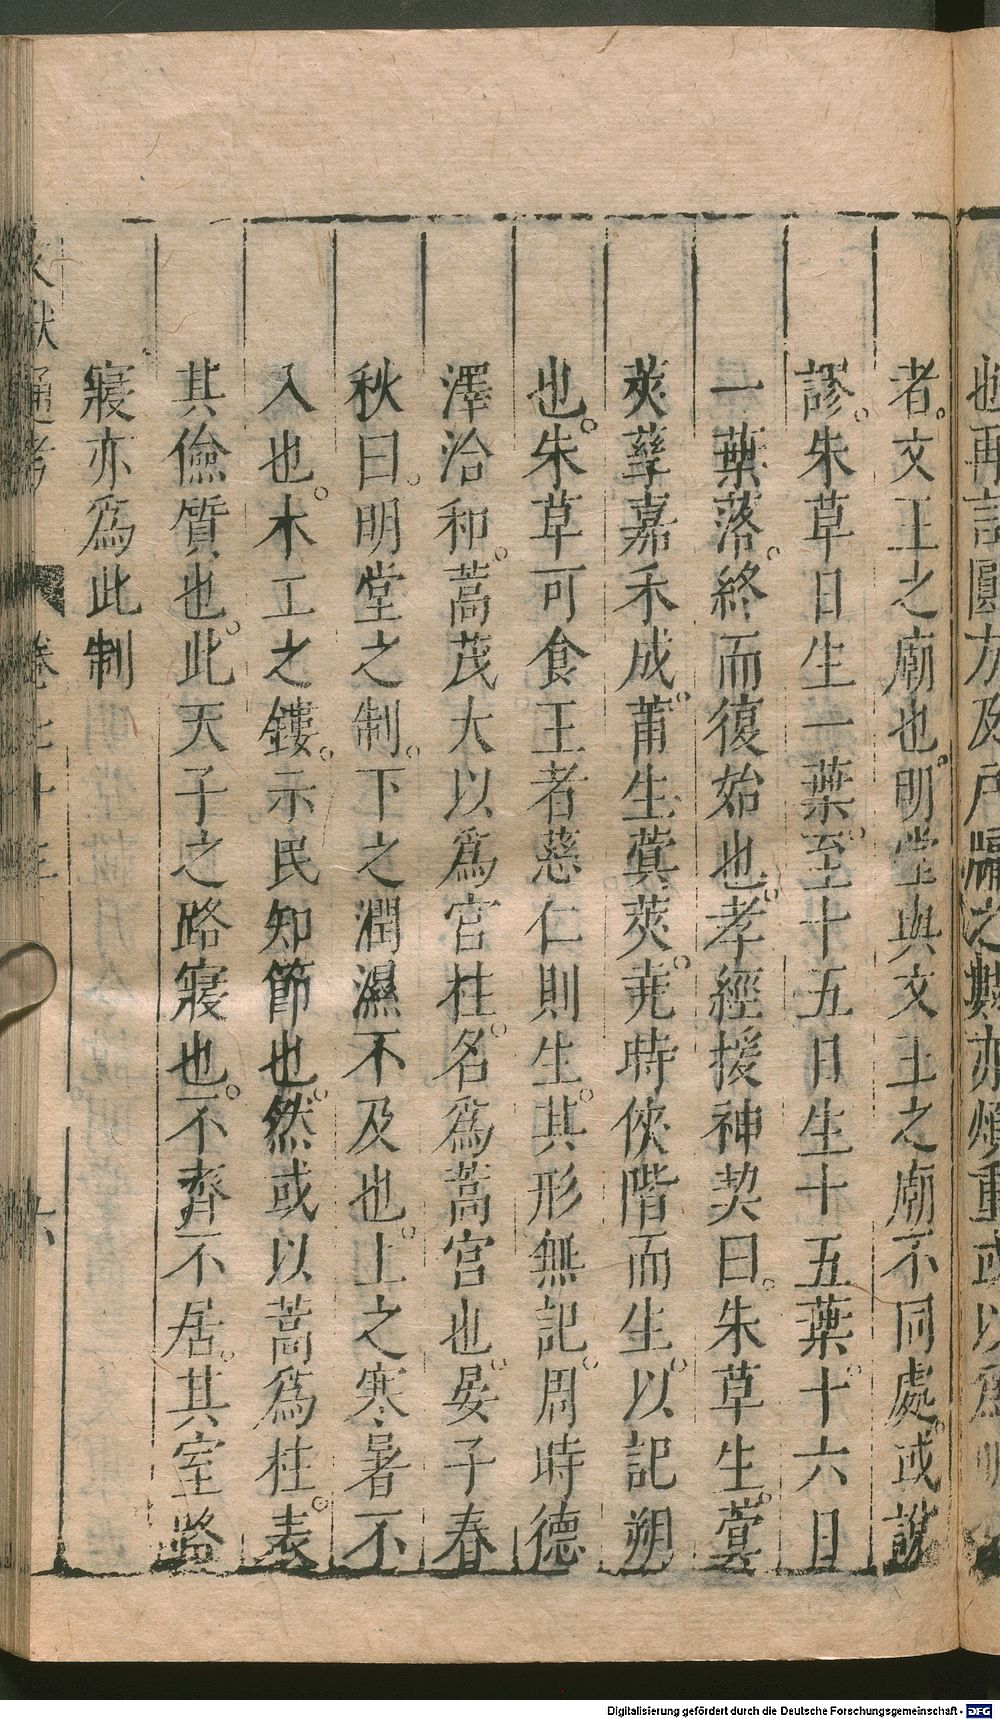 也再言圓方及戶牖之數亦煩重或以爲明
者。文王之廟也。明堂與文王之廟不同處。或說
謬。朱草日生一葉。至十五日生十五葉。十六日
一葉落。終而復始也。孝經援神契曰。朱草生。蓂
莢孳嘉禾成。莆生蓂莢。堯時俠階而生。以記朔
也。朱草可食王者慈仁則生。其形無記。周時德
澤洽和。蒿茂大以爲宮柱。名爲蒿宮也。晏子春
秋曰。明堂之制。下之潤濕不及也。上之寒暑不
入也。木工之鏤。示民知節也。然或以蒿爲柱。表
其儉質也。此天子之路寢也。不齊不居。其室路
寢亦爲此制
文獻通考 卷七十三 六
Digitalisierung gefördert durch die Deutsche Forschungsgemeinschaft - DFG